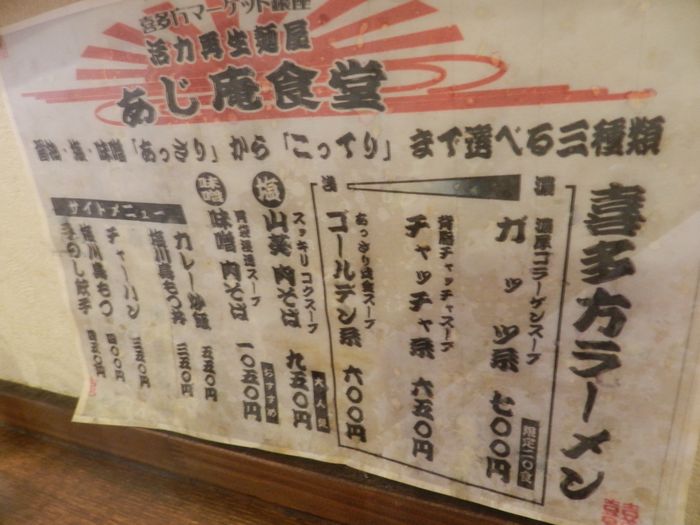 喜多方マーケット銀座
活力再生麺屋
あじ庵食堂
醤油・塩・味噌「あっさり」から「こってり」まで選べる三種類
喜多方ラーメン
濃
淡
濃厚コラーゲンスープ
ガッツ系 七〇〇円
限定二〇食
背脂チャッチャスープ
チャッチャ系 六五〇円
あっさり定食スープ
ゴールデン系 六〇〇円
塩
スッキリコクスープ
山葵肉そば 九五〇円
味噌
スープ
味噌肉そば 一〇五〇円
おすすめ
サイドメニュー
カレー炒飯 五五〇円
塩川鳥もつ丼 三五〇円
チャーハン 四〇〇円
塩川鳥もつ 三五〇円
手のし餃子 四五〇円